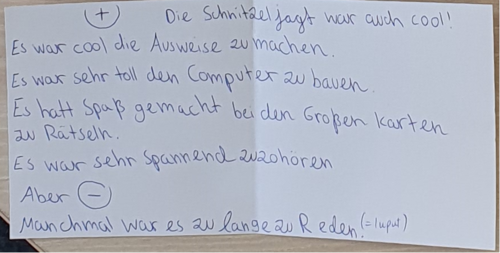 (+) Die Schnitzeljagt war auch cool!
Es war cool die Ausweise zu machen.
Es war sehr toll den Computer zu bauen.
Es hatt Spaß gemacht bei den Großen Karten
zu Rätseln.
Es war sehr spannend zuzohören
Aber (-)
Manchmal war es zu lange zu Reden! (=Input)